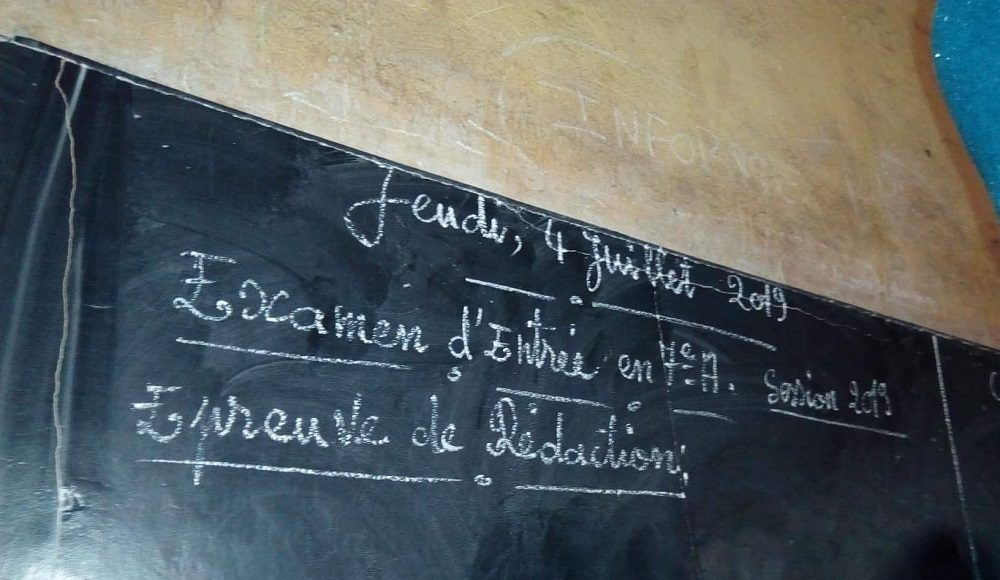 INFOR
Jeudi, 4 Juillet 2019
Examen d'Entrée en 7e A. Session 2019
Epreuve de Rédaction